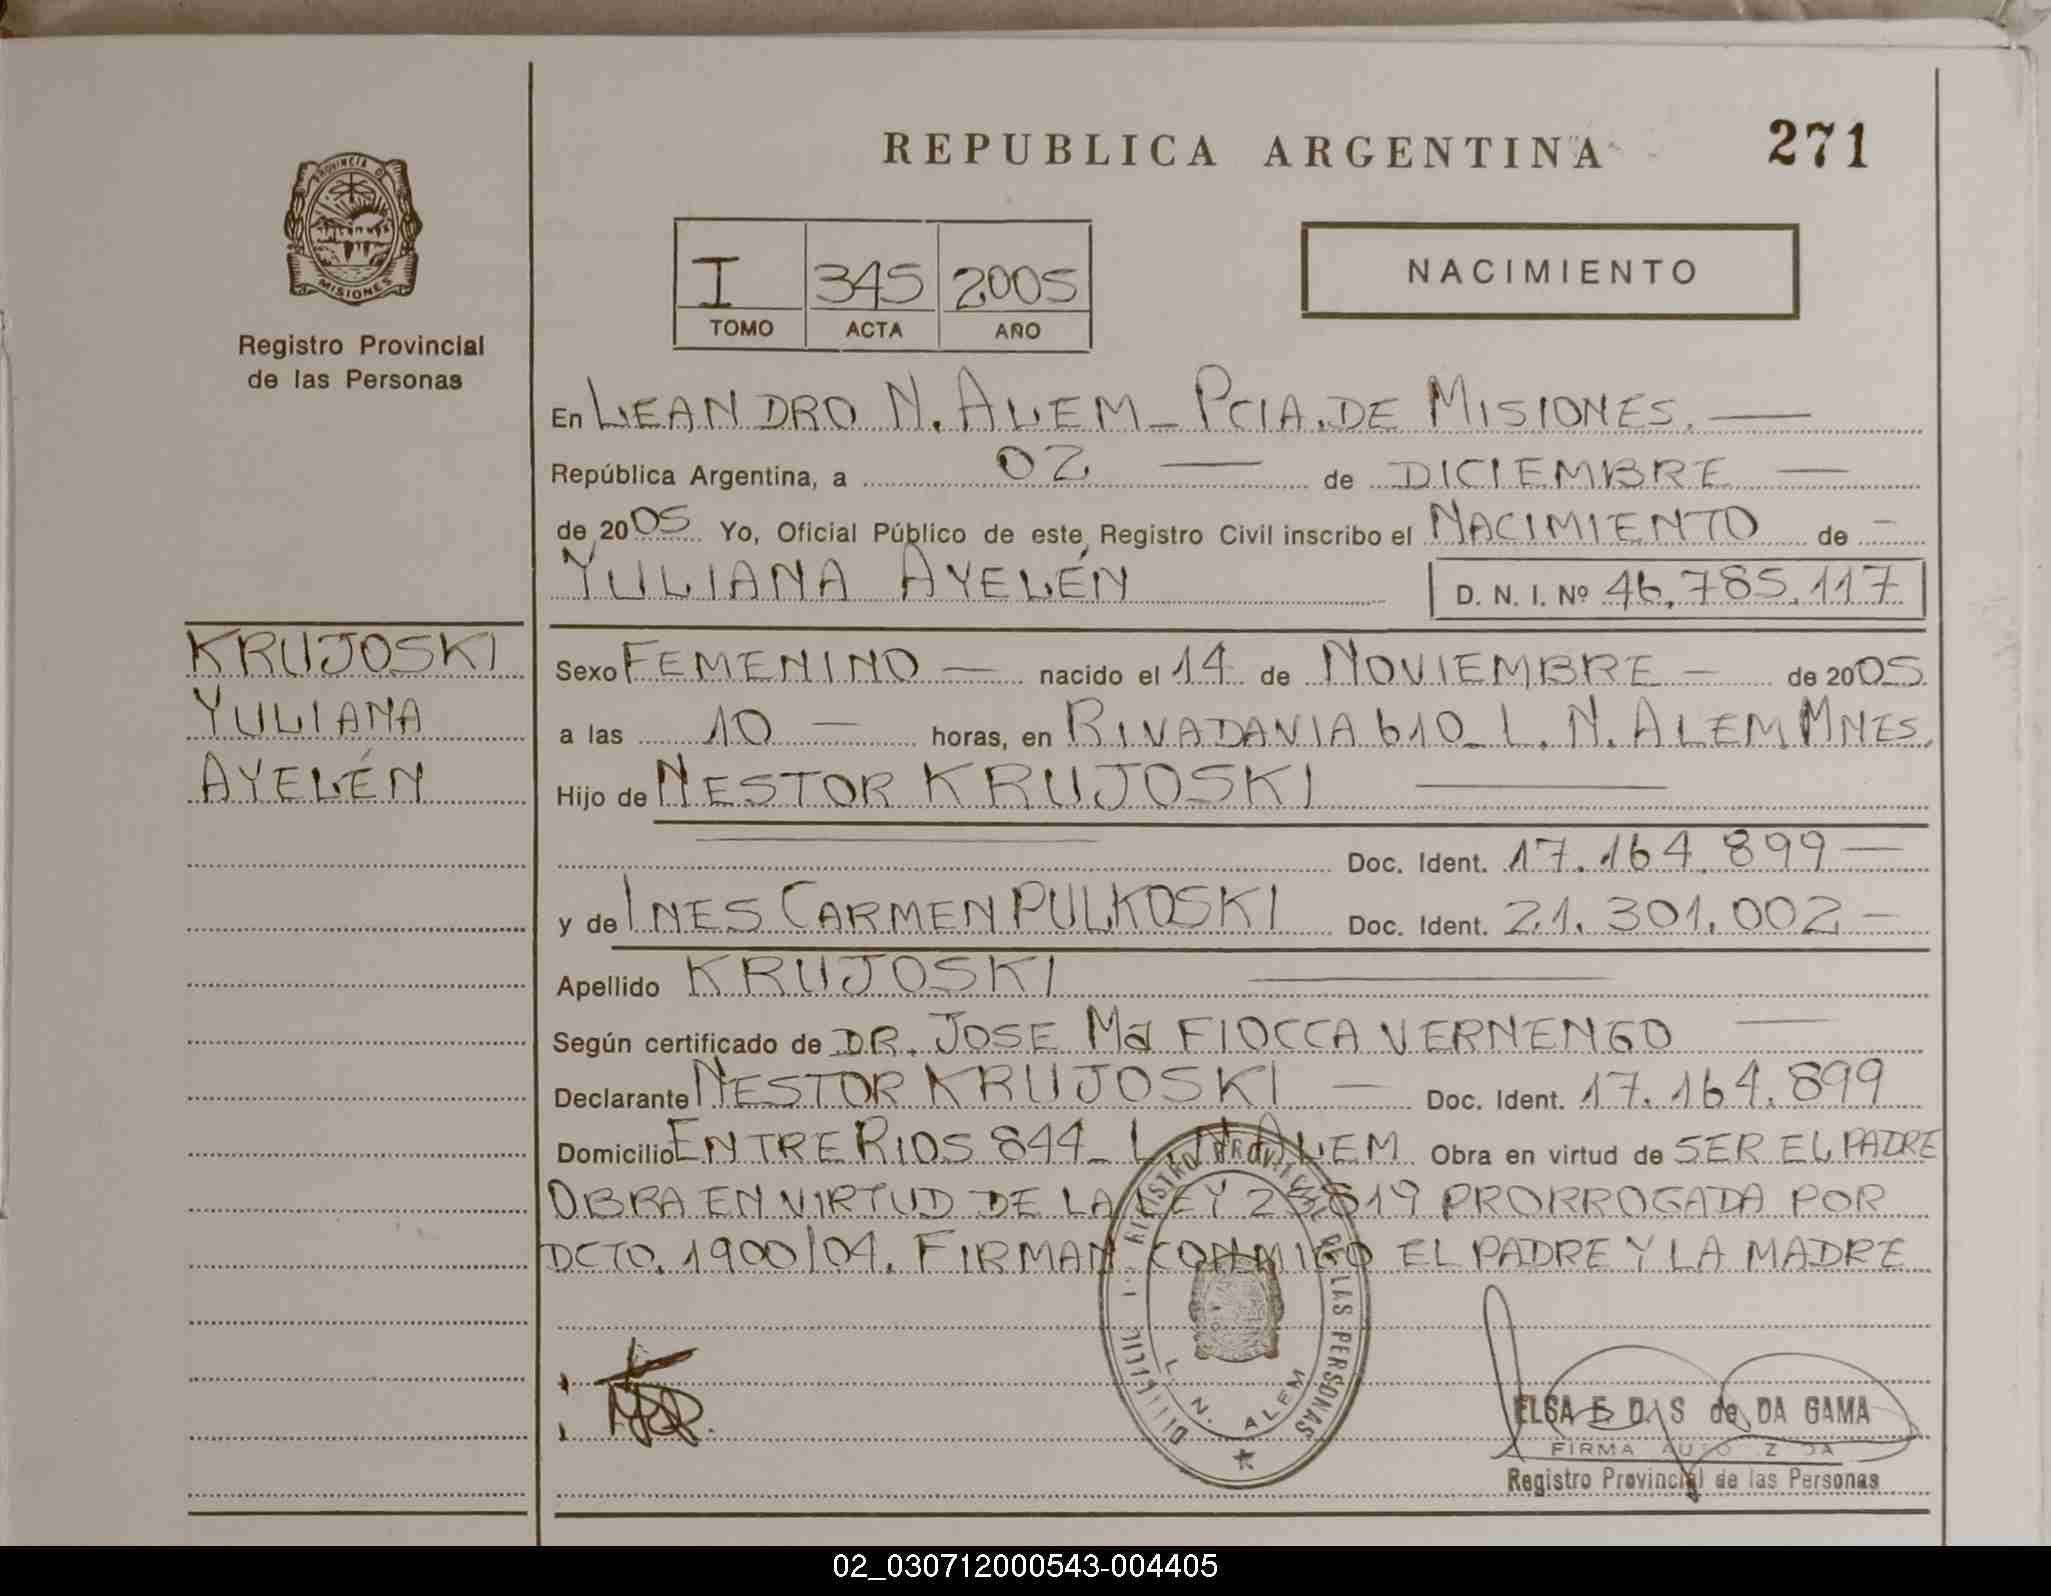 REPUBLICA ARGENTINA 271
PROVINCIA DE
MISIONES
Registro Provincial
de las Personas
I 345 2005
TOMO ACTA AÑO
NACIMIENTO
En LEANDRO N. ALEM _ PCIA. DE MISIONES. —
República Argentina, a 02 — de DICIEMBRE —
de 2005 Yo, Oficial Público de este Registro Civil inscribo el NACIMIENTO de -
YULIANA AYELÉN D. N. I. Nº 46.785.117
KRUJOSKI
YULIANA
AYELÉN
Sexo FEMENINO — nacido el 14 de NOVIEMBRE - de 2005
a las 10 — horas, en RIVADAVIA 610_ L. N. ALEM MNES.
Hijo de NESTOR KRUJOSKI —
— Doc. Ident. 17.164.899 —
y de INES CARMEN PULKOSKI Doc. Ident. 21.301.002 —
Apellido KRUJOSKI —
Según certificado de DR. JOSE Ma FIOCCA VERNENGO —
Declarante NESTOR KRUJOSKI — Doc. Ident. 17.164.899
Domicilio ENTRE RIOS 844_ L. N. ALEM Obra en virtud de SER EL PADRE
OBRA EN VIRTUD DE LA LEY 25819 PRORROGADA POR
DCTO. 1900/04. FIRMAN CONMIGO EL PADRE Y LA MADRE
REGISTRO PROVINCIAL DE LAS PERSONAS
L. N. ALEM
ELSA E D S de DA GAMA
FIRMA AUTORIZADA
Registro Provincial de las Personas
02_030712000543-004405